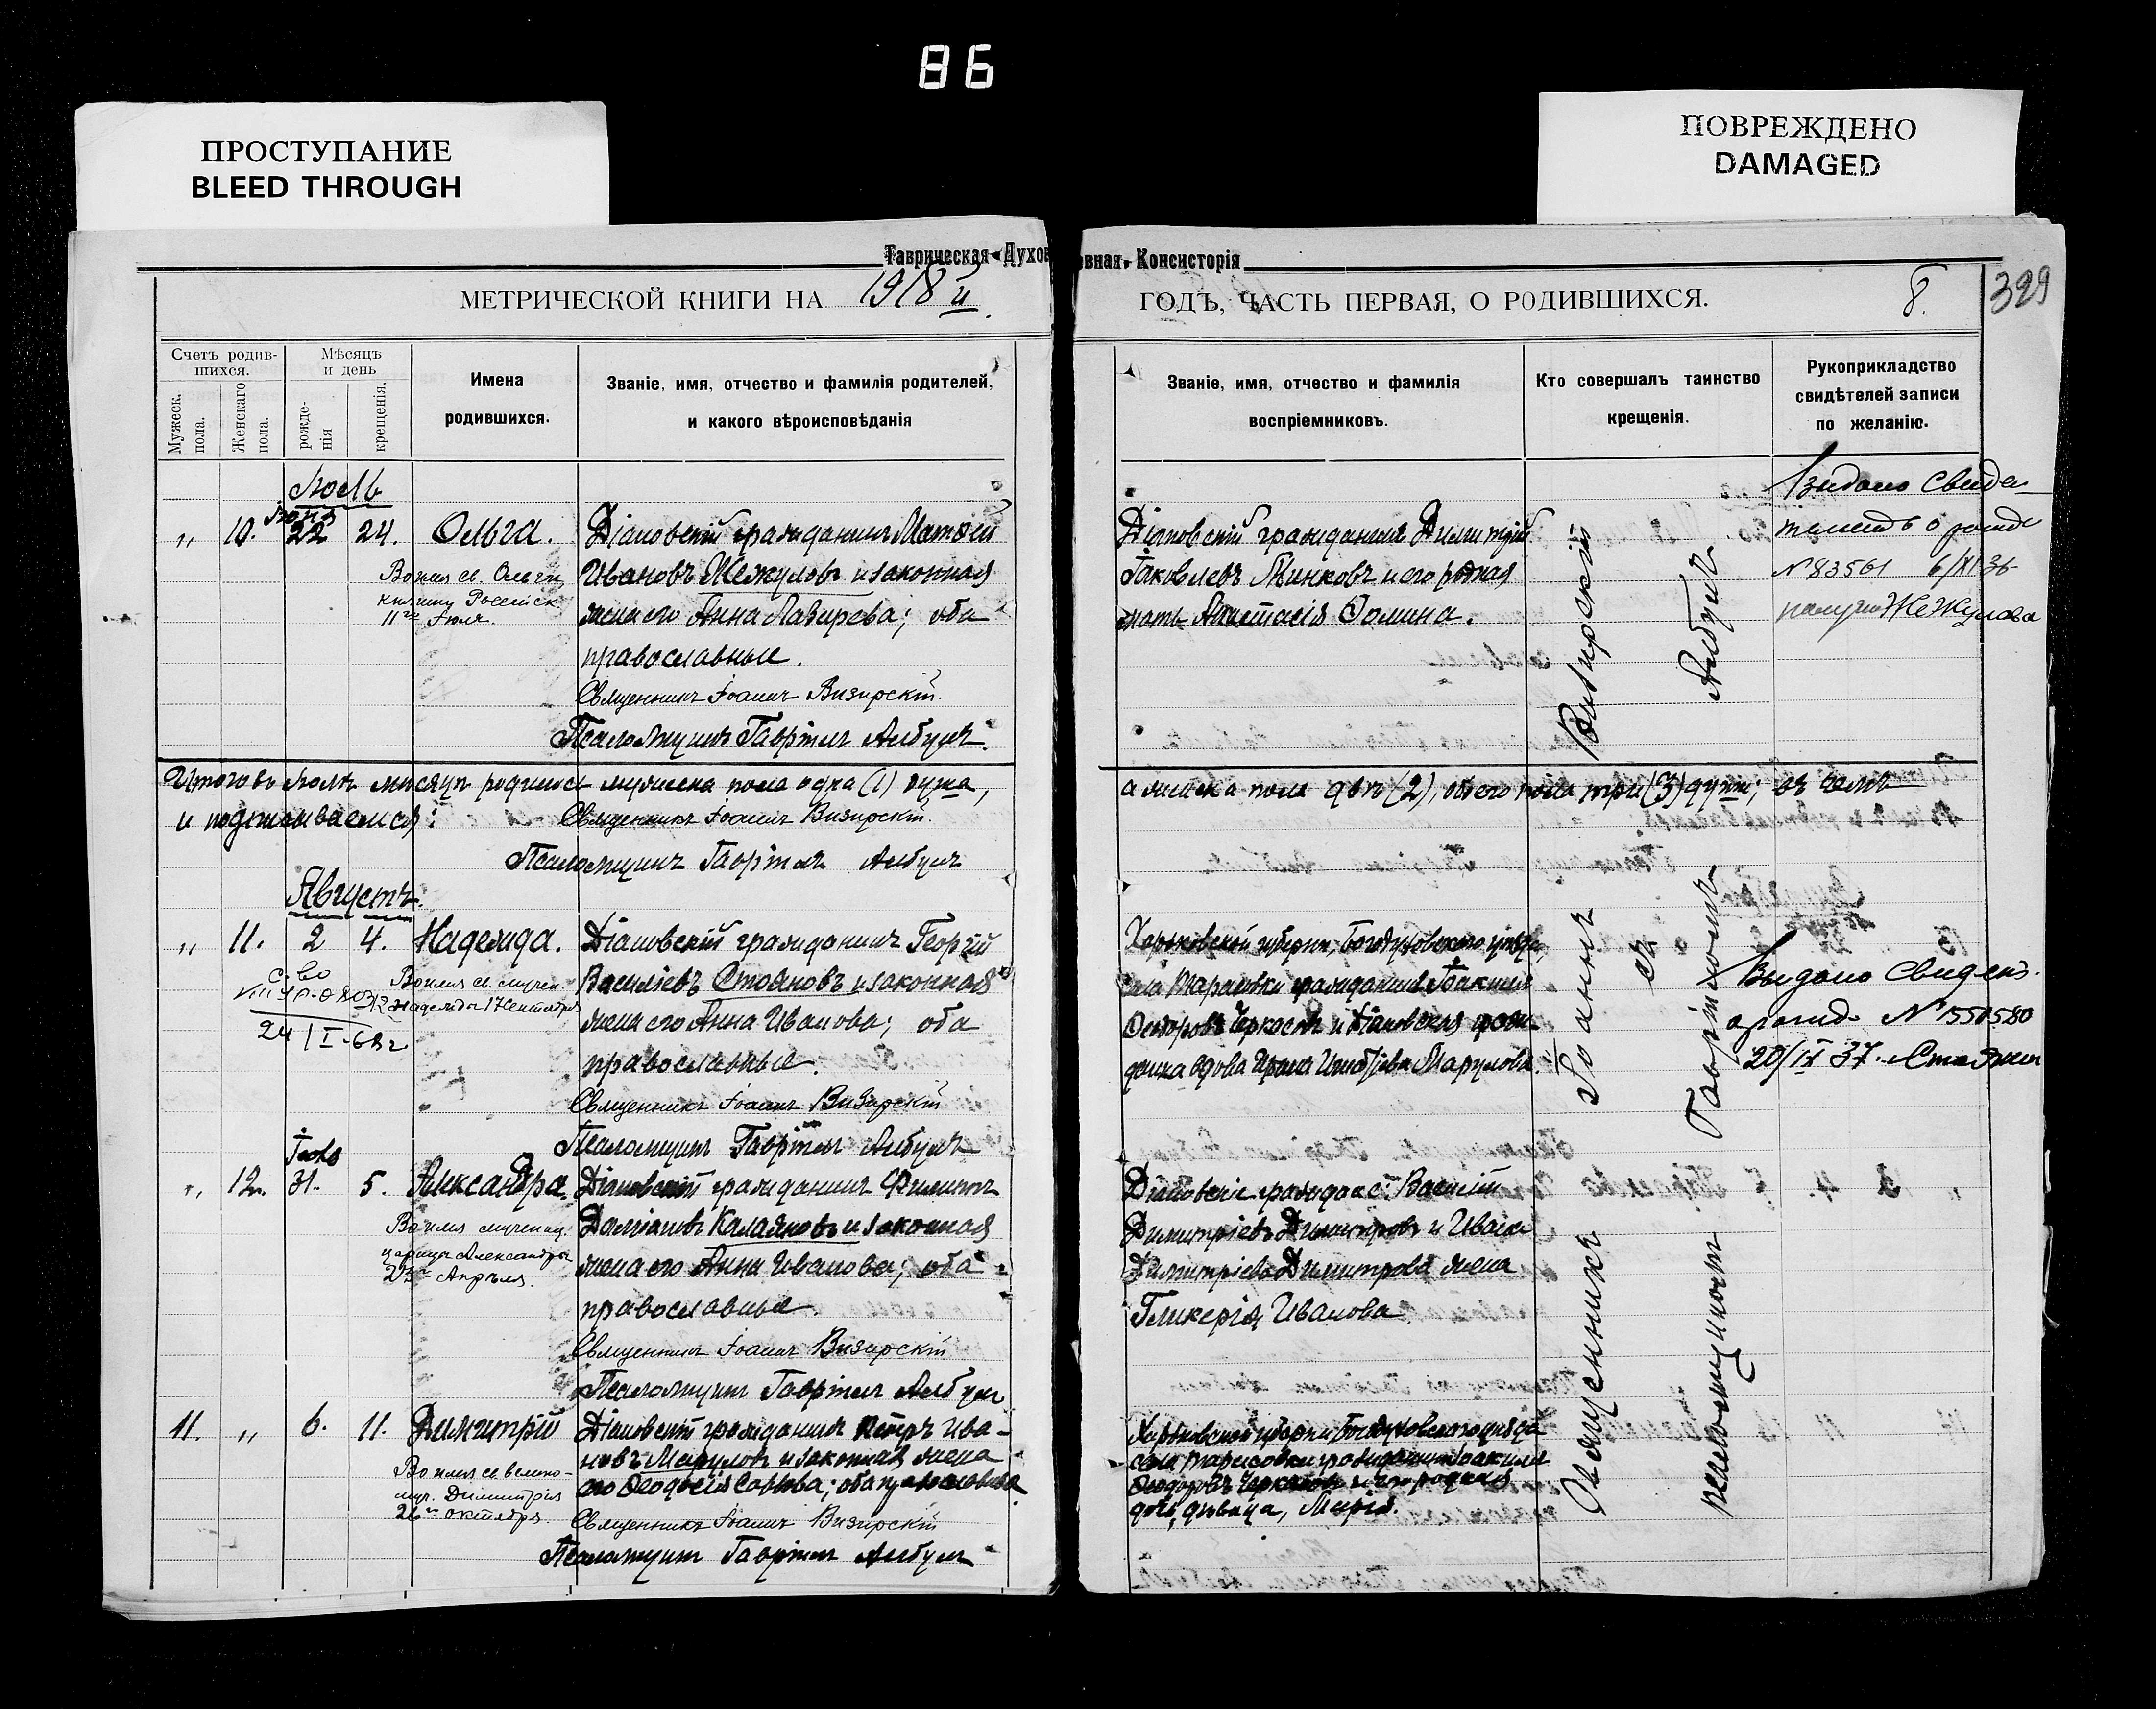 86
ПРОСТУПАНИЕ
BLEED THROUGH
ПОВРЕЖДЕНО
DAMAGED
Таврическая Духовная Консисторія
МЕТРИЧЕСКОЙ КНИГИ НА 1918 й
ГОДЪ, ЧАСТЬ ПЕРВАЯ, О РОДИВШИХСЯ.
8.
329
Счетъ родив-
шихся.
Мужеск. пола.
Женскаго пола.
Мѣсяцъ
и день
рожде-
нія
крещенія.
Имена
родившихся.
Званіе, имя, отчество и фамилія родителей,
и какого вѣроисповѣданія
Званіе, имя, отчество и фамилія
воспріемниковъ.
Кто совершалъ таинство
крещенія.
Рукоприкладство
свидѣтелей записи
по желанію.
Іюль
„ 10. 22 24. Ольга.
Во имя св. Ольги,
княгини Россійск.
11го Іюля.
Діановскій гражданинъ Матѳей
Ивановъ Межуловъ и законная
жена его Анна Лазарева; оба
православные.
Священникъ Іоаннъ Визирскій.
Псаломщикъ Гавріилъ Албулъ.
Діановскій гражданинъ Димитрій
Іаковлевъ Минковъ и его родная
мать Анастасія Ѳомина.
Выдано Свиде-
тельств о рожд
N 83561 6/XI 36
получил Межулова
Итого въ Іюлѣ мѣсяцѣ родилось мужеска пола одна (1) душа,
а женска пола двѣ (2), обоего пола три (3) души; въ чемъ
и подписываемся:
Священникъ Іоаннъ Визирскій.
Псаломщикъ Гавріилъ Албулъ
Августъ.
„ 11. 2 4. Надежда.
Во имя св. мучен.
Надежды 17 Сентября
С-во
24/I-68г
Діановскій гражданинъ Георгій
Василіевъ Стояновъ и законная
жена его Анна Иванова; оба
православные.
Священникъ Іоаннъ Визирскій
Псаломщикъ Гавріилъ Албулъ
Харьковской губерніи, Богодуховскаго уѣзда,
села Тарасовки гражданинъ Іоакимъ
Ѳеодоровъ Черкасовъ и Діановская граж-
данка вдова Марулова.
Выдано Свидет.
о рожд. N 550580
20/IX 37. Стоянов
„ 12. 31. 5. Александра.
Во имя мучениц.
царицы Александры
23го Апрѣля.
Діановскій гражданинъ Филиппъ
Даміановъ Калаяновъ и законная
жена его Анна Иванова; оба
православные.
Священникъ Іоаннъ Визирскій
Псаломщикъ Гавріилъ Албулъ
Діановскіе граждане: Василій
Димитріевъ Димитровъ и Ивана
Димитріева Димитрова жена
Гликерія Иванова.
11. „ 6. 11. Димитрій
Во имя св. велико-
муч. Димитрія
26го Октября.
Діановскій гражданинъ Петръ Ива-
новъ Маруловъ и законная жена
его Ѳеодосія Саввова; оба православные.
Священникъ Іоаннъ Визирскій
Псаломщикъ Гавріилъ Албулъ
Харьковской губерніи Богодуховскаго уѣзда
села Тарасовки гражданинъ Іоакимъ
Ѳеодоровъ Черкасовъ и его родная
дочь, дѣвица, Марія.
Священникъ Іоаннъ Визирскій
съ
псаломщикомъ Гавріиломъ Албулъ